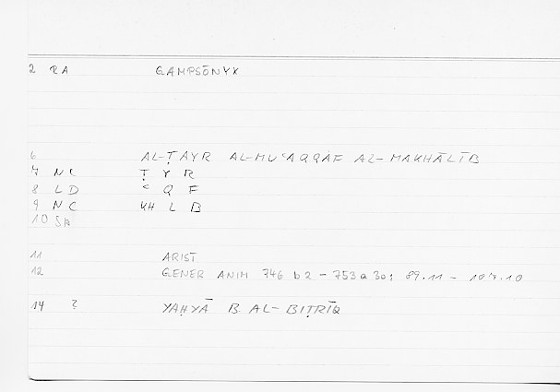 2 RA GAMPSŌNYX
6 AL-ṬAYR AL-MUʿAQQAF AL-MAKHĀLĪB
7 NC Ṭ Y R
8 LD ʿ Q F
9 NC KH L B
10 SA
11 ARIST
12 GENER ANIM 746 b2 - 753a30; 89.11 - 107.10
14 ? YAḤYĀ B. AL-BIṬRĪQ